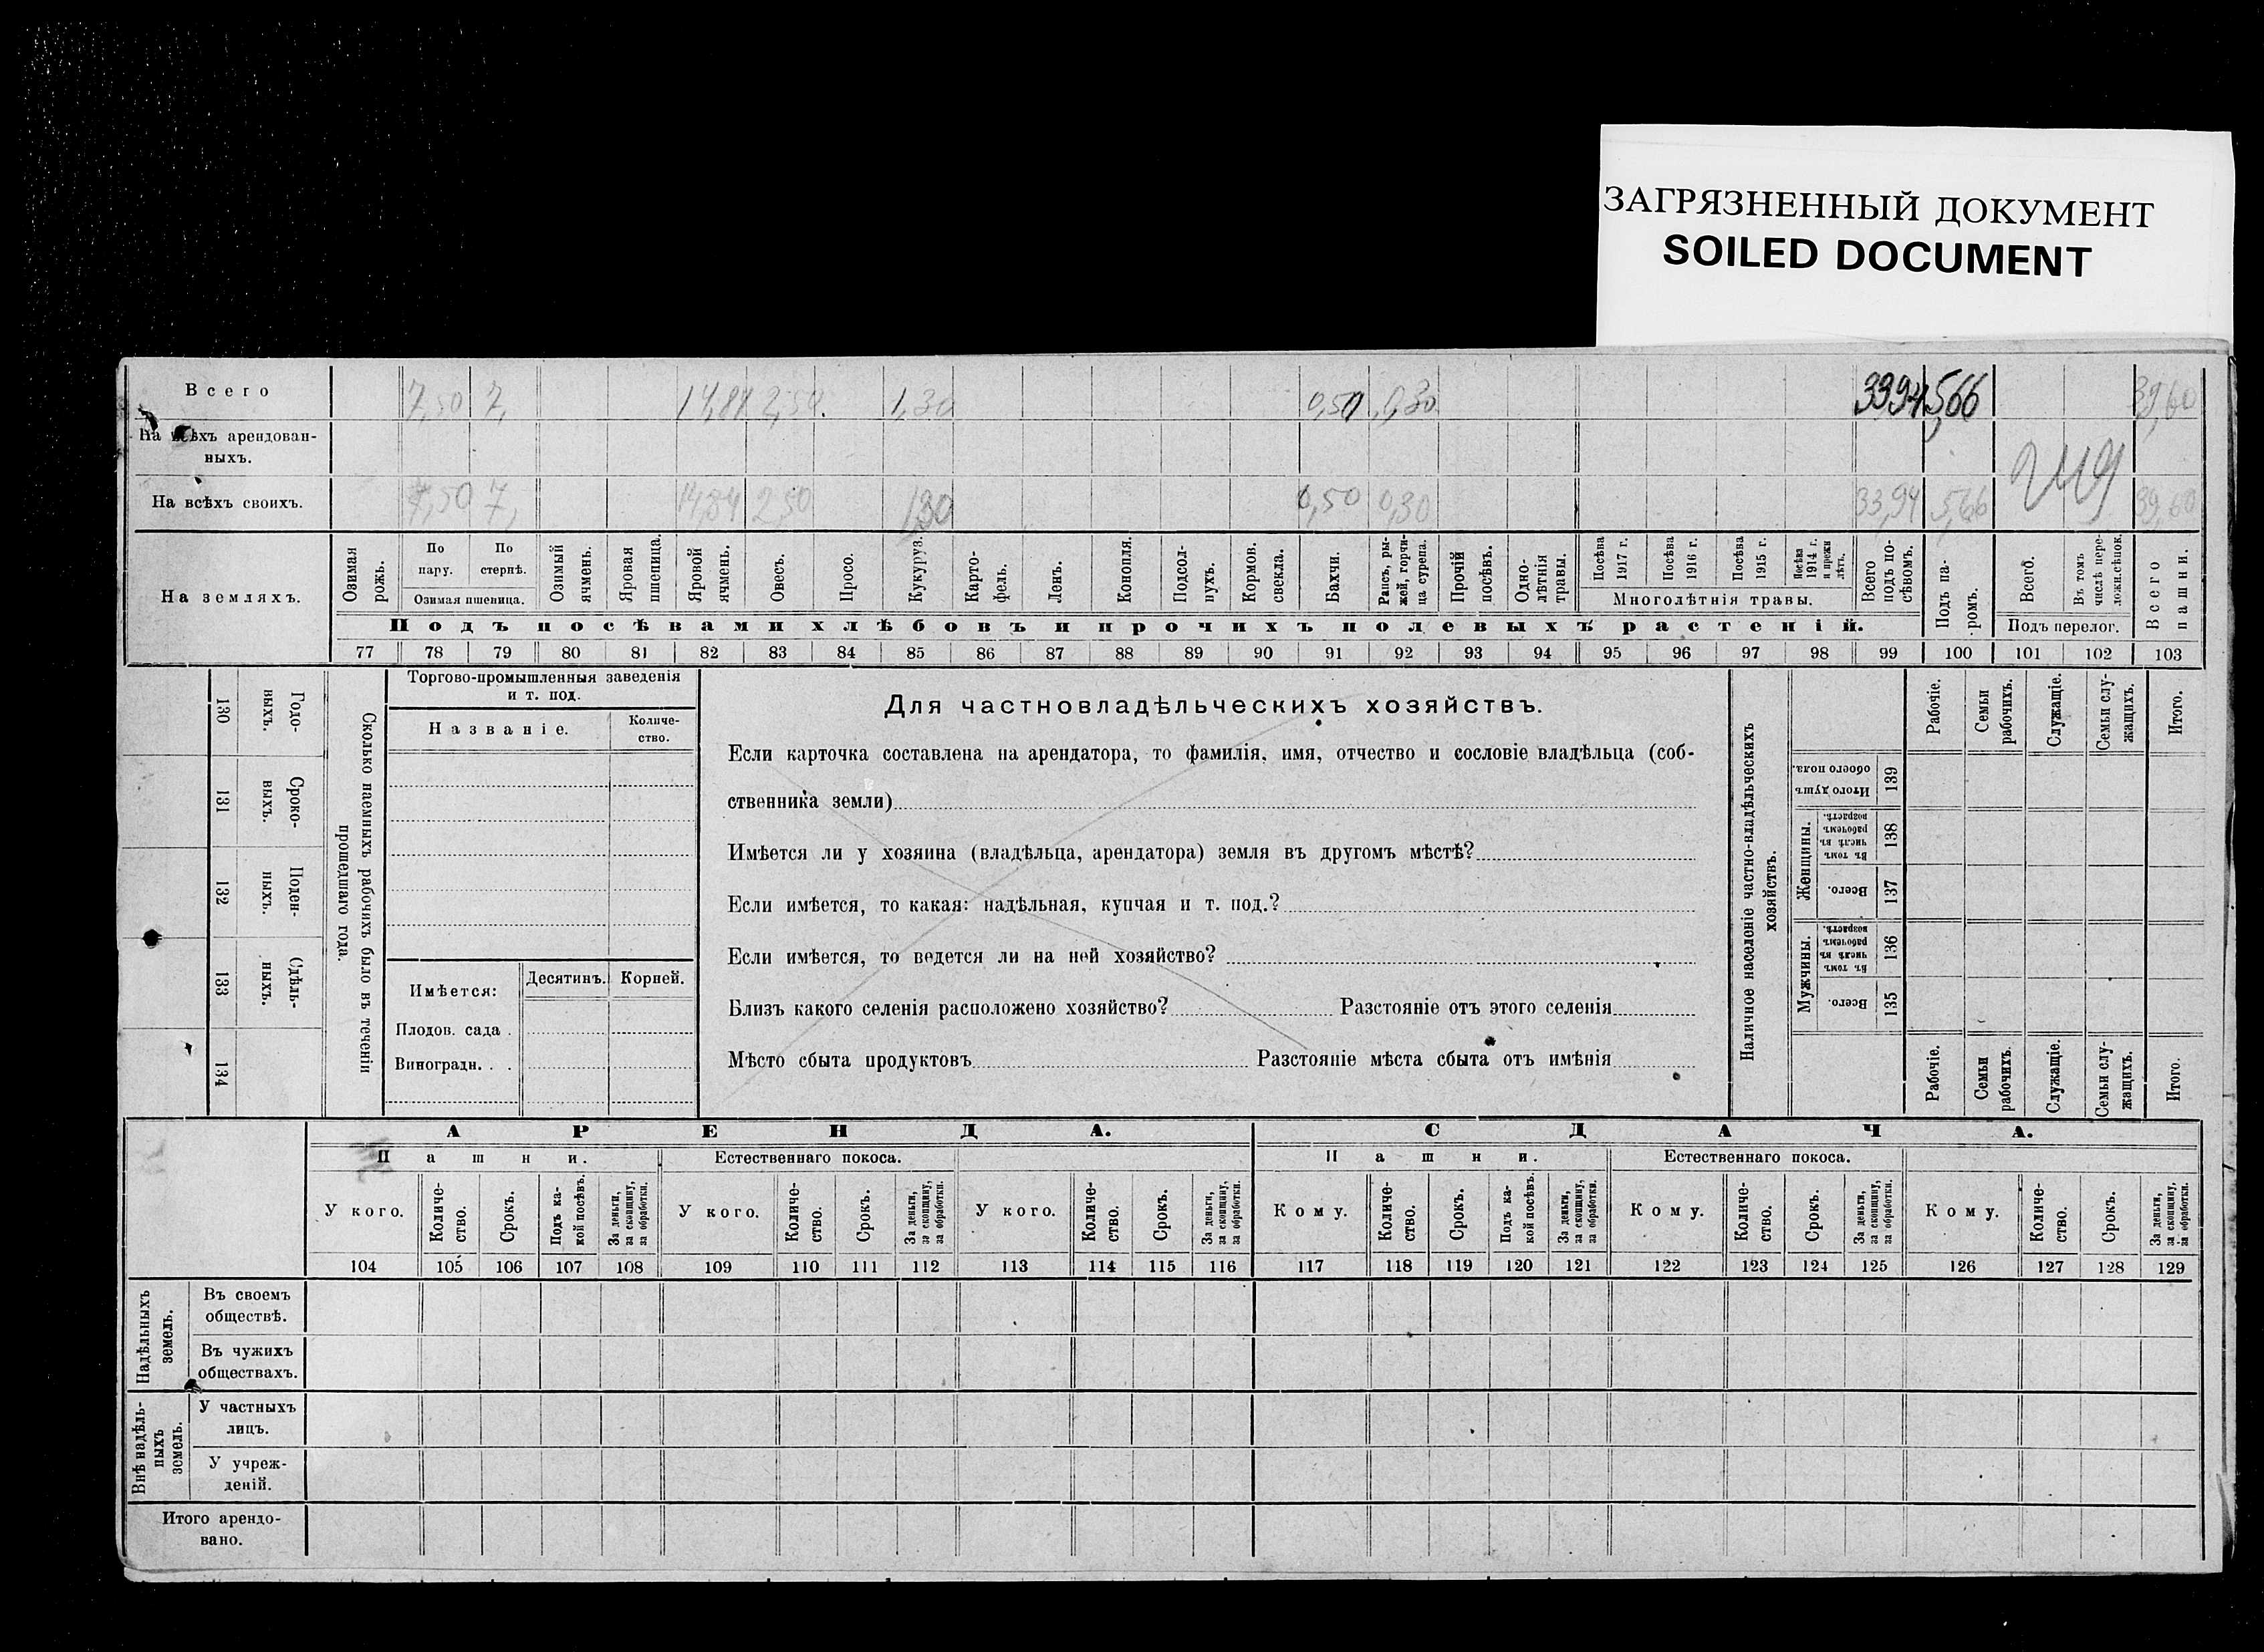 ЗАГРЯЗНЕННЫЙ ДОКУМЕНТ
SOILED DOCUMENT
Всего 7,50 7, 2,50 1,30 0,50 0,30 3394 566 39,60
На всѣхъ арендован-
ныхъ.
На всѣхъ своихъ. 7,50 7, 2,50 1,30 0,50 0,30 33,94 5,66 39,60
На земляхъ.
Озимая рожь.
По пару.
По стернѣ.
Озимая пшеница.
Озимый ячмень.
Яровая пшеница.
Яровой ячмень.
Овесъ.
Просо.
Кукуруз.
Карто-
фель.
Ленъ.
Конопля.
Подсол-
нухъ.
Кормов.
свекла.
Бахчи.
Рапсъ, ры-
жей, горчи-
ца сурепа.
Прочій
посѣвъ.
Одно-
лѣтнія
травы.
Посѣва
1917 г.
Посѣва
1916 г.
Посѣва
1915 г.
Посѣва
1914 г.
и прежн
лѣтъ.
Многолѣтнія травы.
Всего
подъ по-
сѣвомъ.
Подъ па-
ромъ.
Всего.
Въ томъ
числѣ пере-
ложн.сѣнок.
Подъ перелог.
Всего
пашни.
Подъ посѣвами хлѣбовъ и прочихъ полевыхъ растеній.
77 78 79 80 81 82 83 84 85 86 87 88 89 90 91 92 93 94 95 96 97 98 99 100 101 102 103
Сколько наемныхъ рабочихъ было въ теченіи
прошедшаго года.
Годо-
выхъ.
130
Сроко-
выхъ.
131
Поден-
ныхъ.
132
Сдѣль-
ныхъ.
133
134
Торгово-промышленныя заведенія
и т. под.
Названіе.
Количе-
ство.
Имѣется:
Десятинъ.
Корней.
Плодов. сада .
Виноградн. . .
Для частновладѣльческихъ хозяйствъ.
Если карточка составлена на арендатора, то фамилія, имя, отчество и сословіе владѣльца (соб-
ственника земли)
Имѣется ли у хозяина (владѣльца, арендатора) земля въ другомъ мѣстѣ?
Если имѣется, то какая: надѣльная, купчая и т. под.?
Если имѣется, то ведется ли на ней хозяйство?
Близъ какого селенія расположено хозяйство? Разстояніе отъ этого селенія
Мѣсто сбыта продуктовъ Разстояніе мѣста сбыта отъ имѣнія
Наличное населеніе частно-владѣльческихъ
хозяйствъ.
Рабочіе.
Семьи
рабочихъ.
Служащіе.
Семьи слу-
жащихъ.
Итого.
Итого душъ
обоего пола.
139
Женщины.
Въ томъ
числѣ въ
рабочемъ
возрастѣ.
138
Всего.
137
Мужчины.
Въ томъ
числѣ въ
рабочемъ
возрастѣ.
136
Всего.
135
Рабочіе.
Семьи
рабочихъ.
Служащіе.
Семьи слу-
жащихъ.
Итого.
АРЕНДА. СДАЧА.
Пашни. Естественнаго покоса. Пашни. Естественнаго покоса.
У кого.
Количе-
ство.
Срокъ.
Подъ ка-
кой посѣвъ.
За деньги,
за скопщину,
за обработки.
У кого.
Количе-
ство.
Срокъ.
За деньги,
за скопщину,
за обработки.
У кого.
Количе-
ство.
Срокъ.
За деньги,
за скопщину,
за обработки.
Кому.
Количе-
ство.
Срокъ.
Подъ ка-
кой посѣвъ.
За деньги,
за скопщину,
за обработки.
Кому.
Количе-
ство.
Срокъ.
За деньги,
за скопщину,
за обработки.
Кому.
Количе-
ство.
Срокъ.
За деньги,
за скопщину,
за обработки.
104 105 106 107 108 109 110 111 112 113 114 115 116 117 118 119 120 121 122 123 124 125 126 127 128 129
Надѣльныхъ
земель.
Въ своемъ
обществѣ.
Въ чужихъ
обществахъ.
Внѣ надѣль-
ныхъ
земель.
У частныхъ
лицъ.
У учреж-
деній.
Итого арендо-
вано.